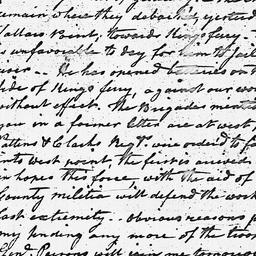 remain where they debarked yesterday
Tallars Point, towards Kings ferry. T
is unfavorable to day for them to sail
river -- He has opened batteries on t
side of Kings ferry, against our wor
without effect. The Brigades mentio
you in a former letter are at west
Pattens & Clarks Regts. were ordered to f
into west point, the first is arrived
in hopes this force, with the aid of
County militia will defend the work
last extremity. -- obvious reasons p
my sending any more of the troo
Genl. Parsons will join me tomorrow